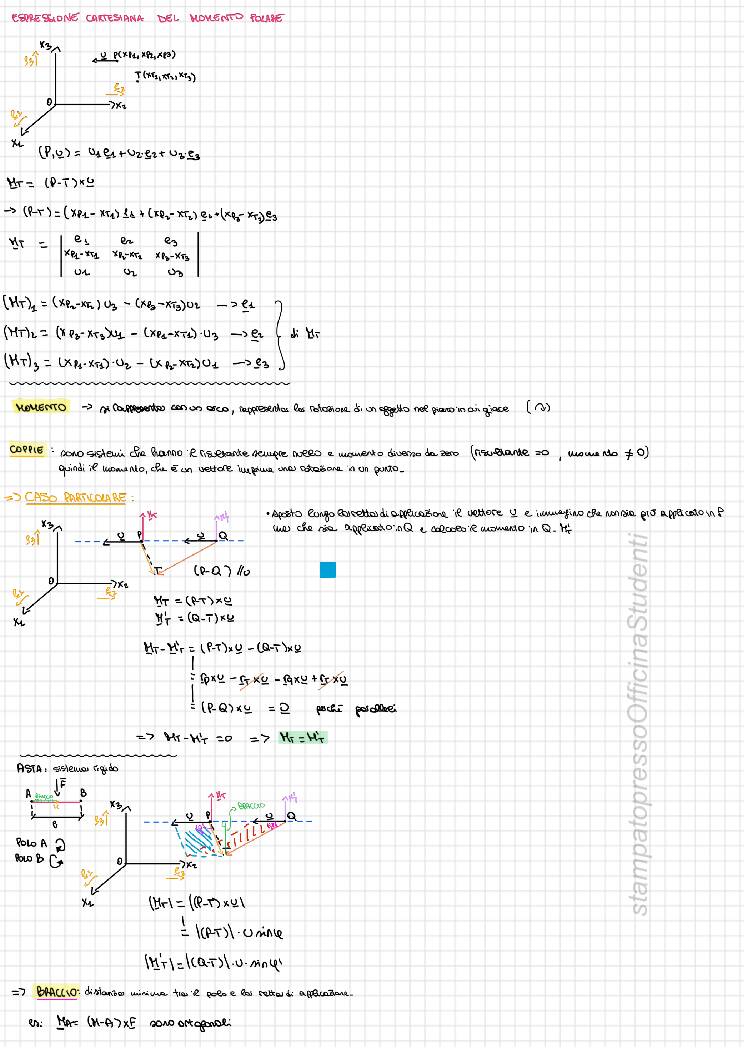 ESPRESSIONE CARTESIANA DEL MOMENTO POLARE
x3
e3
U P(xP1, xP2, xP3)
T(xT1, xT2, xT3)
O
x2
x1
(P,U) = U1 e1 + U2 e2 + U3 e3
MT = (P-T) x U
→ (P-T) = (xP1 - xT1) e1 + (xP2 - xT2) e2 + (xP3 - xT3) e3
MT = | e1 e2 e3
xP1-xT1 xP2-xT2 xP3-xT3
U1 U2 U3 |
(MT)1 = (xP2-xT2) U3 - (xP3-xT3) U2 → e1
(MT)2 = (xP3-xT3) U1 - (xP1-xT1)·U3 → e2 di MT
(MT)3 = (xP1-xT1)·U2 - (xP2-xT2) U1 → e3
MOMENTO → si rappresenta con un arco, rappresenta la rotazione di un oggetto nel piano in cui giace (↷)
COPPIE : sono sistemi che hanno il risultante sempre nullo e momento diverso da zero (risultante = 0, momento ≠ 0)
quindi il momento, che è un vettore imprime una rotazione in un punto.
=> CASO PARTICOLARE:
• sposto lungo la retta di applicazione il vettore U e immagino che non sia più applicato in P
ma che sia applicato in Q e calcolo il momento in Q. M'T
x3 MT M'T
e3 U P U Q
T (P-Q) // U
O x2
x1
MT = (P-T) x U
M'T = (Q-T) x U
MT - M'T = (P-T) x U - (Q-T) x U
= rP x U - rT x U - rQ x U + rT x U
= (P-Q) x U = 0 poiché paralleli
=> MT - M'T = 0 => MT = M'T
ASTA: sistema rigido
F
A B
BRACCIO
x3 MT BRACCIO M'T
e3 U P U Q
POLO A
POLO B
O T x2
x1
|MT| = |(P-T) x U|
= |(P-T)|·U sinφ
|M'T| = |(Q-T)|·U·sinφ'
=> BRACCIO: distanza minima tra il polo e la retta di applicazione.
es: MA = (M-A) x F sono ortogonali
stampatopressoOfficinaStudenti